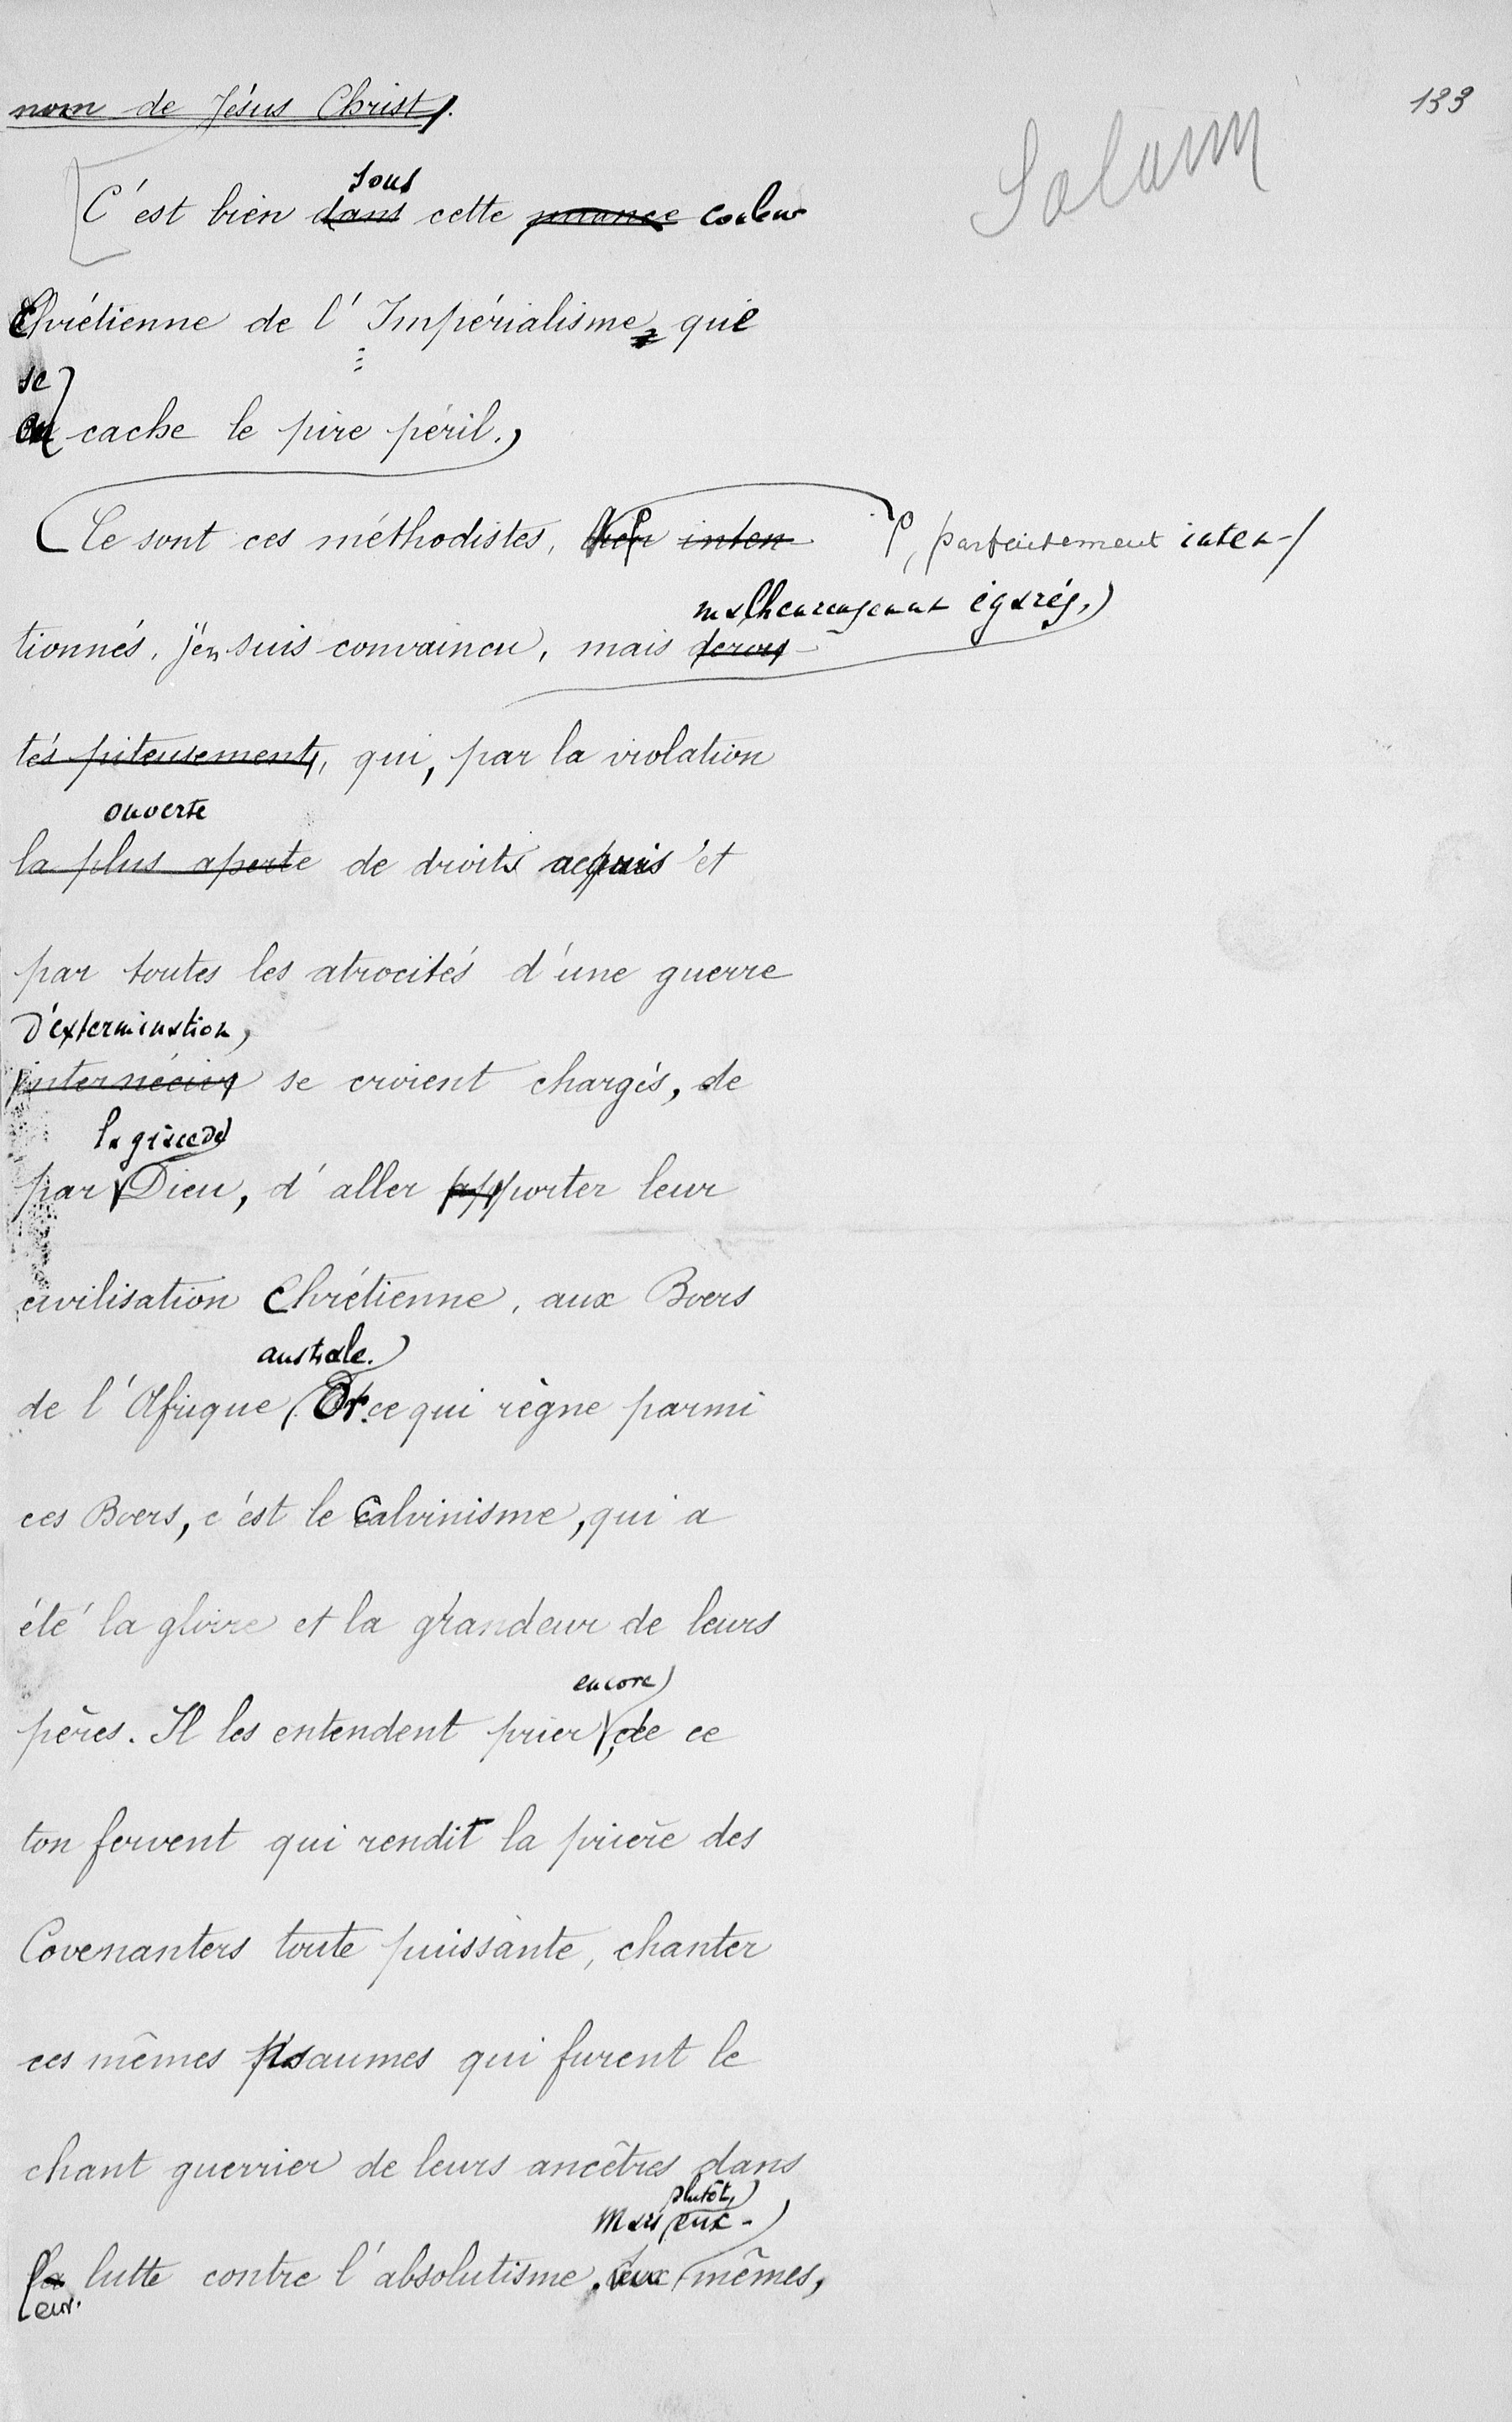 133
nom de Jésus Christ.
Salann
sous
C'est bien dans cette nuance couleur
Chrétienne de l'Impérialisme, que
se
cache le pire péril.
Ce sont ces méthodistes, bien inten-
, parfaitement inten-
malheureusement égarés,
tionnés, j'en suis convaincu, mais
tés piteusement, qui, par la violation
ouverte
la plus aperte de droits acquis et
par toutes les atrocités d'une guerre
d'extermination,
internécive se croient chargés, de
la grâce de
par Dieu, d'aller apporter leur
civilisation Chrétienne, aux Boers
australe.
de l'Afrique. Or ce qui règne parmi
ces Boers, c'est le Calvinisme, qui a
été la gloire et la grandeur de leurs
encore
pères. Il les entendent prier, de ce
ton fervent qui rendit la prière des
Covenanters toute puissante, chanter
ces mêmes Psaumes qui furent le
chant guerrier de leurs ancêtres dans
plutôt,
Mais eux-
la lutte contre l'absolutisme. Eux mêmes,
eur.